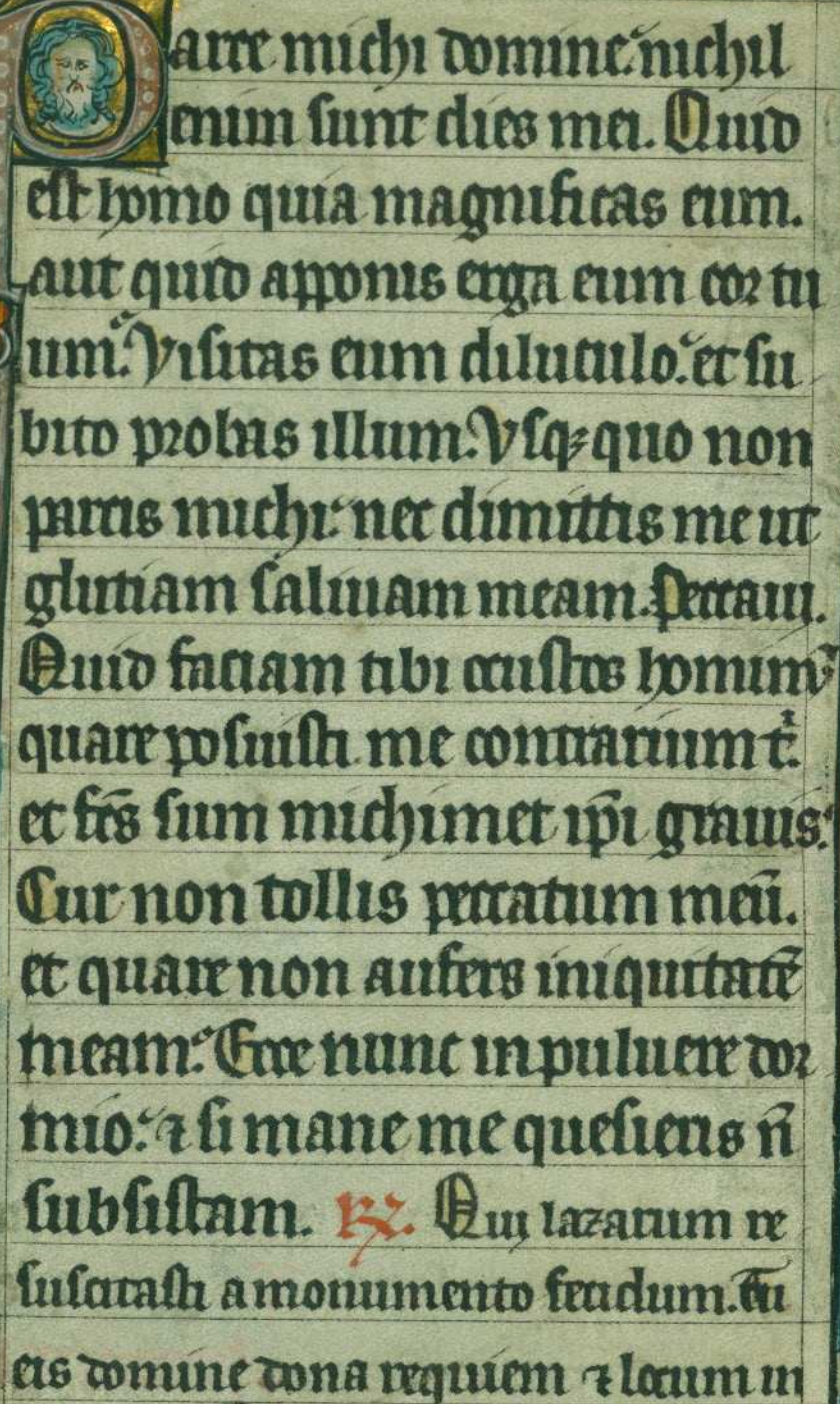 Parce michi domine nichil
enim sunt dies mei. Quid
est homo quia magnificas eum.
aut quid apponis erga eum cor tu
um. Visitas eum diluculo. et su
bito probas illum. Vsqꝫ quo non
parcis michi. nec dimittis me ut
glutiam saliuam meam. Peccaui.
Quid faciam tibi o custos hominū
quare posuisti me contrarium tⁱ.
et fcs̄ sum michimet ip̄i grauis.
Cur non tollis peccatum meū.
et quare non aufers iniquitatē
meam. Ecce nunc in puluere dor
mio. ⁊ si mane me quesieris n̄
subsistam. ℟. Qui lazarum re
suscitasti a monumento fetidum. Tu
eis domine dona requiem ⁊ locum in